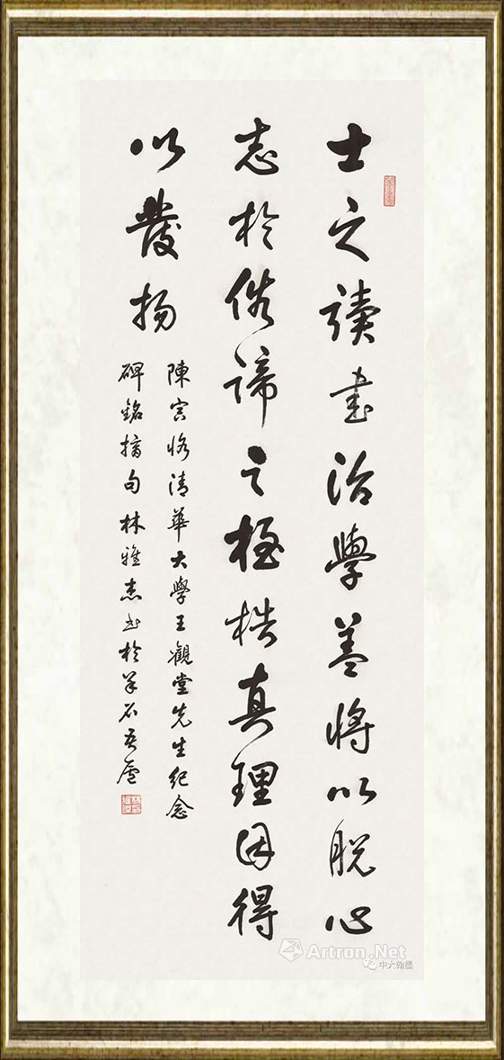 士之讀書治學蓋將以脱心
志於俗諦之桎梏真理因得
以發揚
陳寅恪清華大學王觀堂先生紀念
碑銘摘句林雅杰书於羊石吾廬
Artron.Net
中大翰墨